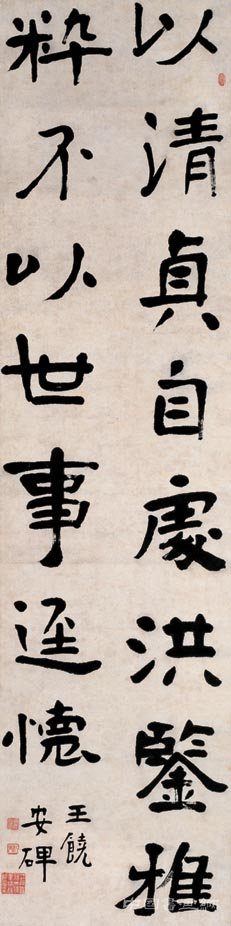 以清貞自處洪鑒雅
粹不以世事逕懷
王饒
安碑